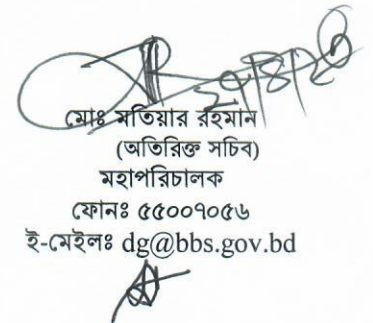 মোঃ মতিয়ার রহমান
(অতিরিক্ত সচিব)
মহাপরিচালক
ফোনঃ ৫৫০০৭০৫৬
ই-মেইলঃ dg@bbs.gov.bd